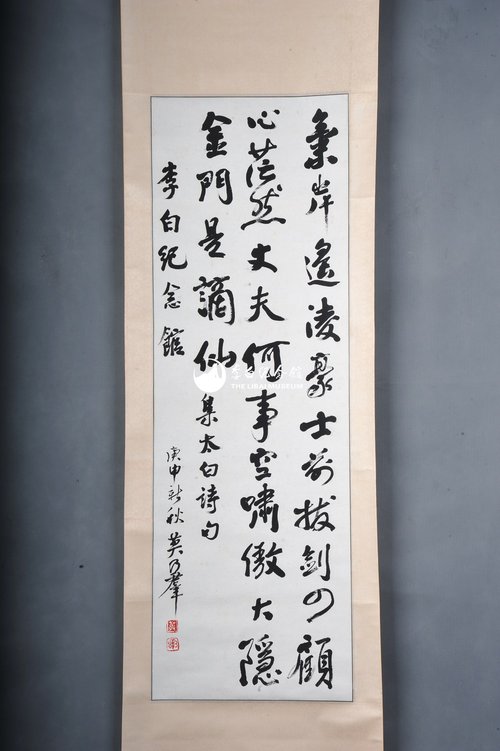 氣岸遙凌豪士前拔劍四顧
心茫然丈夫何事空嘯傲大隱
金門是謫仙 集太白詩句
李白紀念館
庚申新秋 莫乃羣
李白纪念館
THE LIBAI MUSEUM